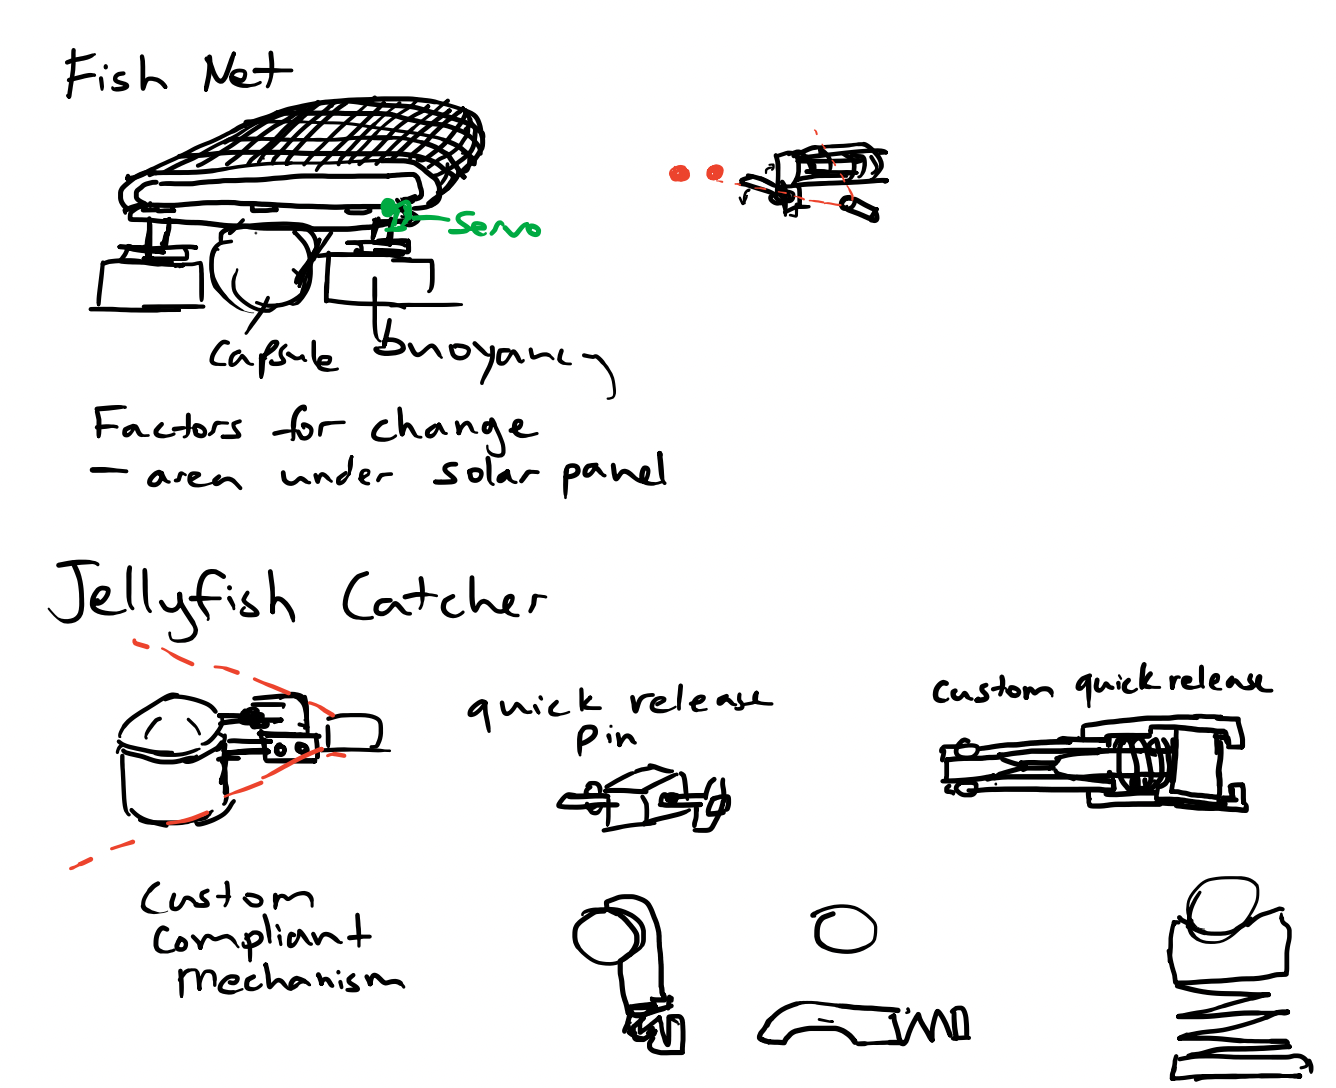 Fish Net
Servo
Capsule
buoyancy
Factors for change
- area under solar panel
Jellyfish Catcher
quick release
pin
Custom quick release
Custom
Compliant
Mechanism